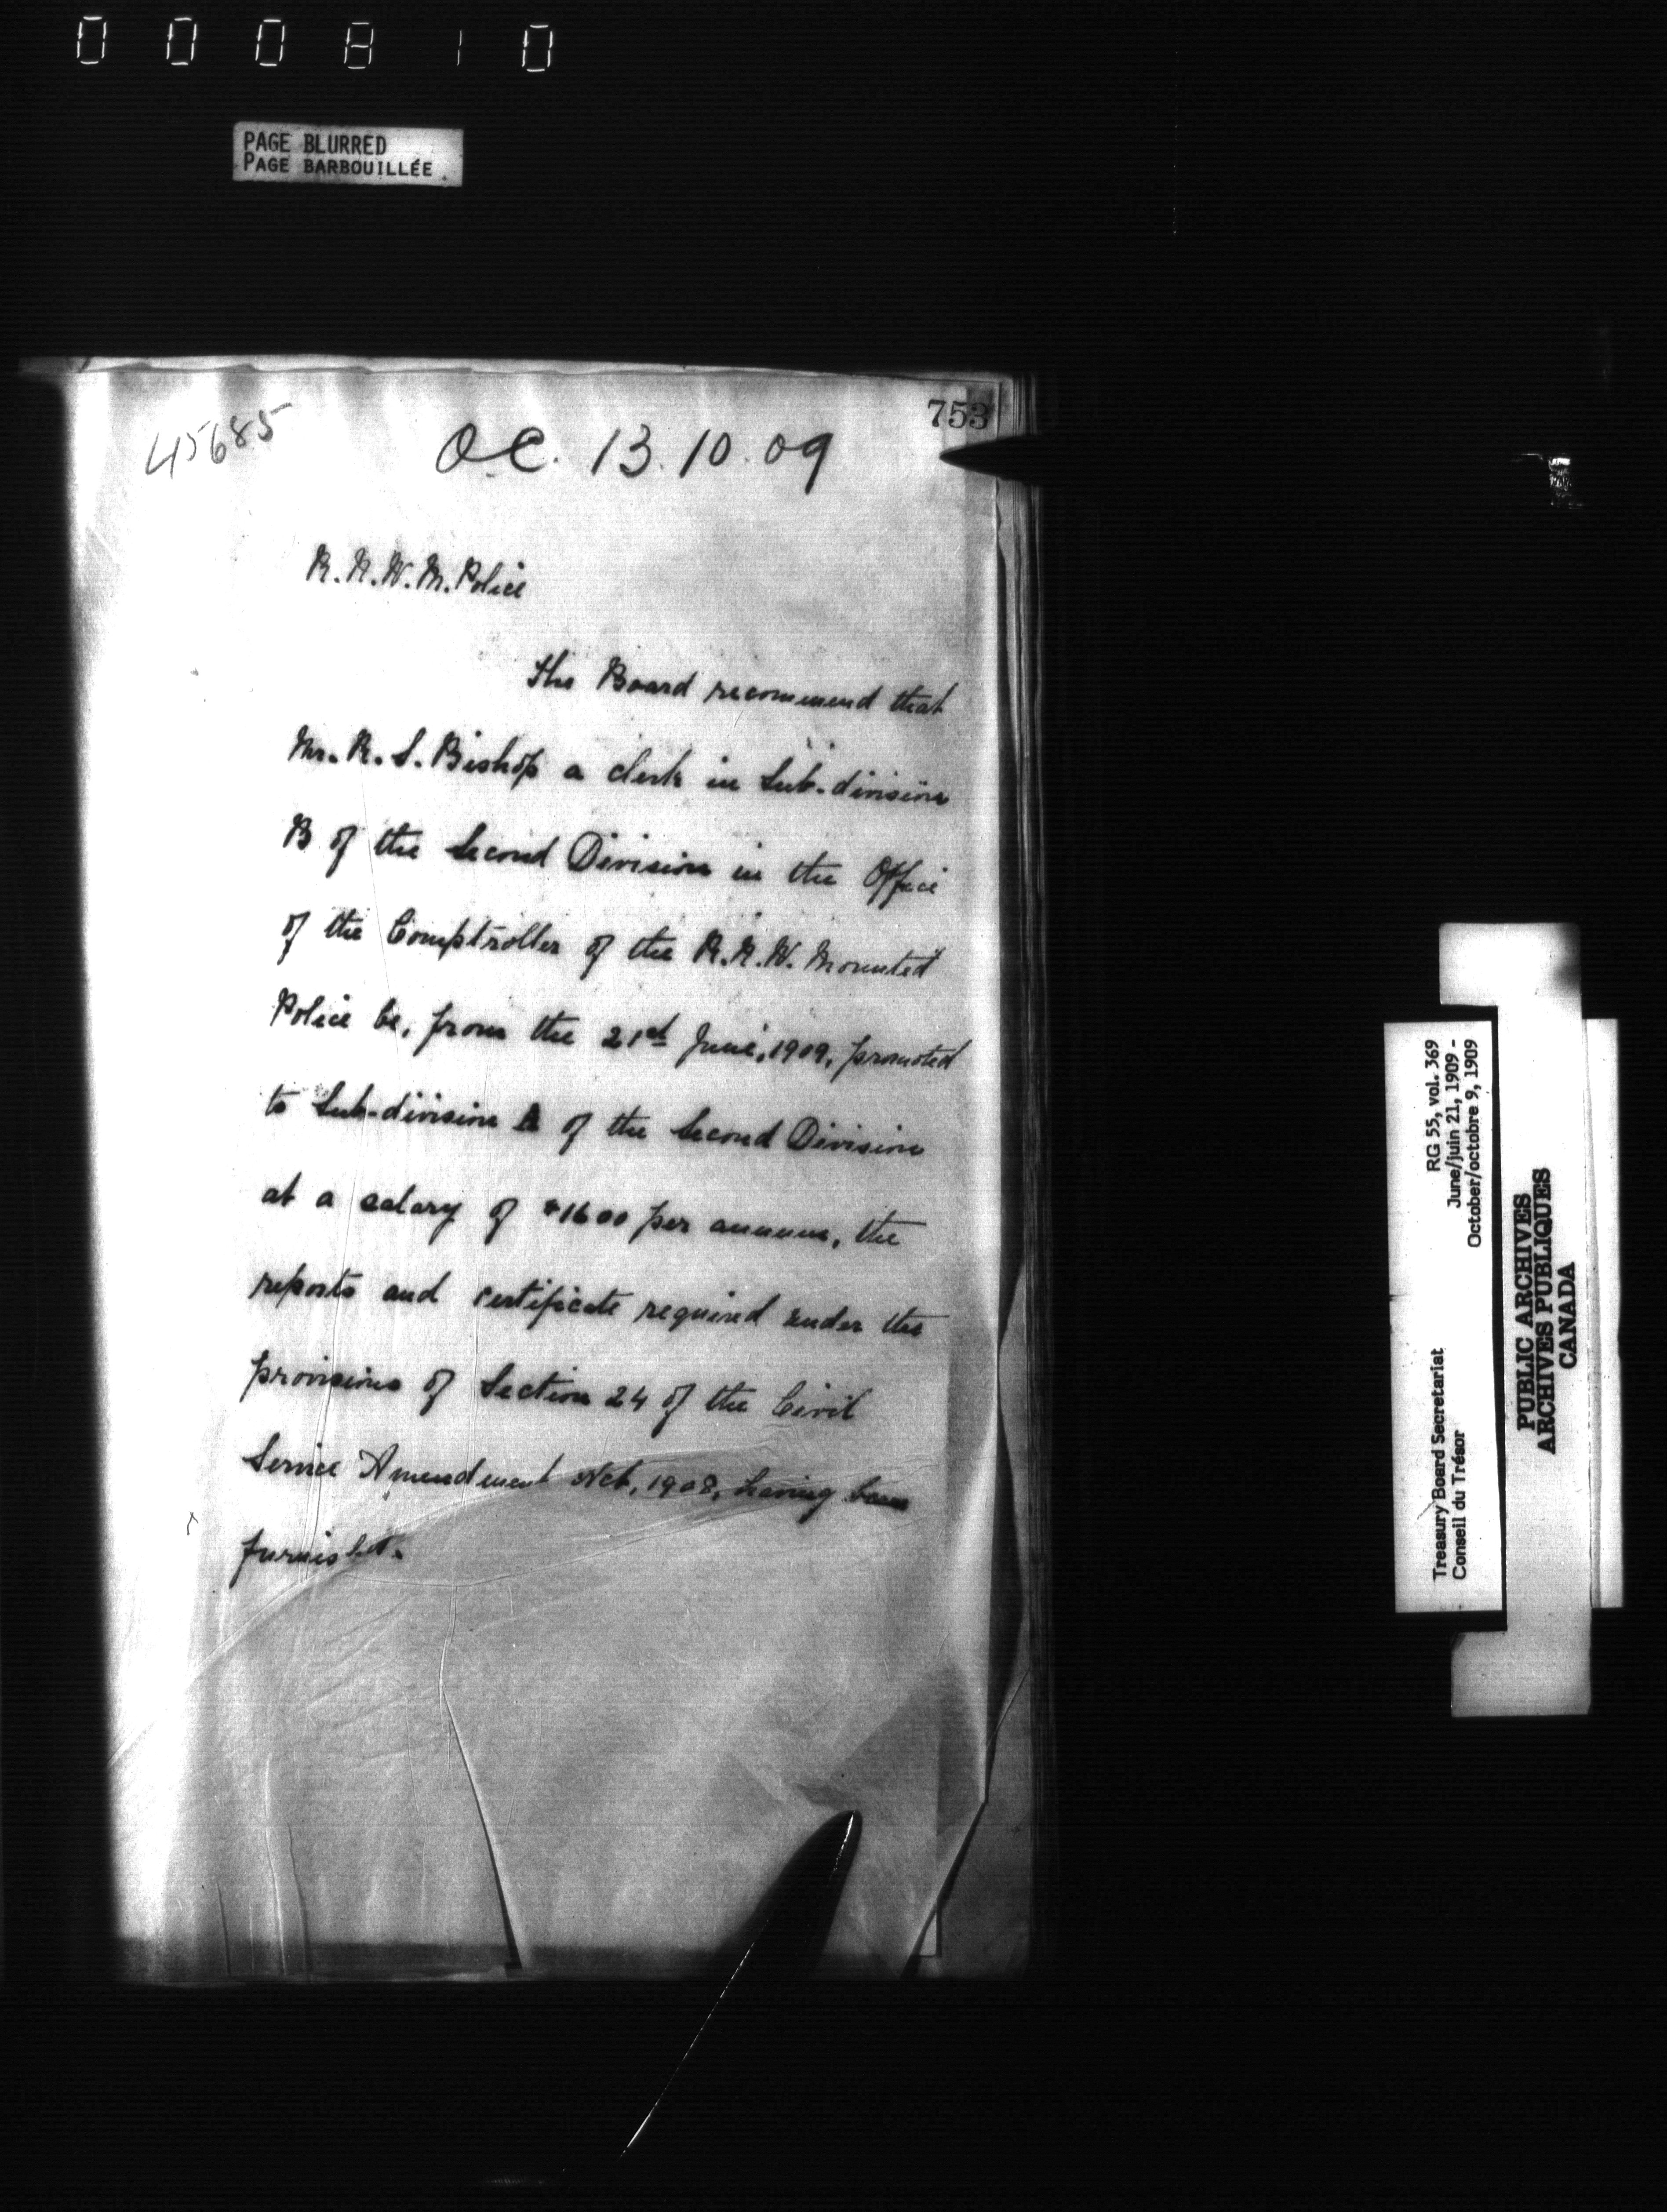 000810
PAGE BLURRED
PAGE BARBOUILLÉE
753
45685
O.C. 13.10.09
R.N.W.M. Police
The Board recommend that
Mr. R. S. Bishop a clerk in Sub-division
B of the Second Division in the Office
of the Comptroller of the R.N.W. Mounted
Police be, from the 21st June, 1909, promoted
to Sub-division A of the Second Division
at a salary of $1600 per annum, the
reports and certificate required under the
provisions of Section 24 of the Civil
Service Amendment Act, 1908, having been
furnished.
Treasury Board Secretariat
Conseil du Trésor
RG 55, vol. 369
June/juin 21, 1909 -
October/octobre 9, 1909
PUBLIC ARCHIVES
ARCHIVES PUBLIQUES
CANADA